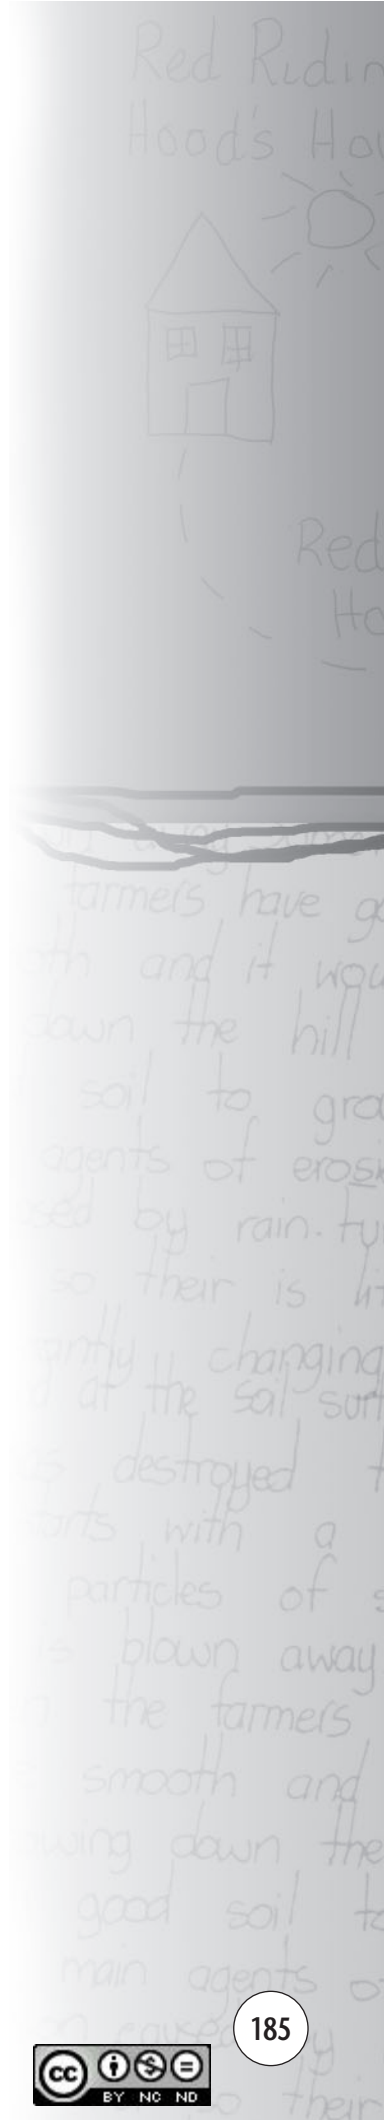 Red Ridin
Hood's Hou
Red
Ho
away
farmers have go
and it wou
down the hill
soil to gro
agents of erosi
by rain. fu
so their is lit
changing
at the soil surf
destroyed t
with a
particles of s
is blown away
the farmers
smooth and
down the
good soil to
main agents o
caused by
185
their
cc
BY NC ND